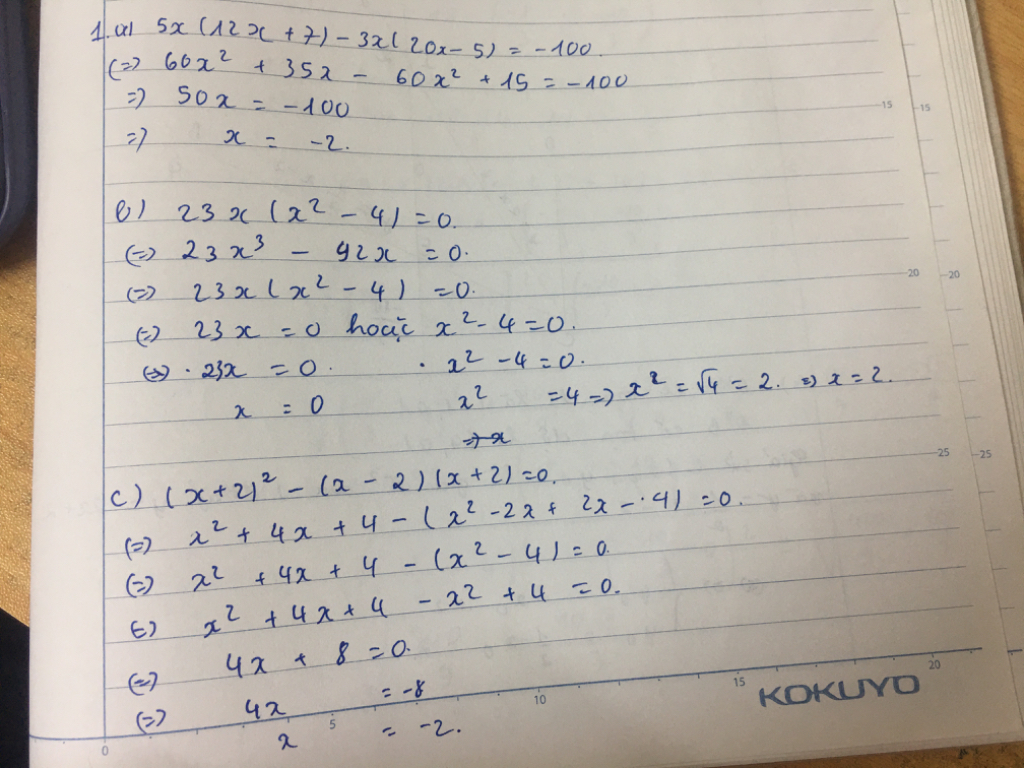 1. a) 5x(12x + 7) - 3x(20x - 5) = -100.
(=) 60x² + 35x - 60x² + 15 = -100
=) 50x = -100
=) x = -2.
b) 23x(x² - 4) = 0.
(=) 23x³ - 92x = 0.
(=) 23x(x² - 4) = 0.
(=) 23x = 0 hoặc x² - 4 = 0.
(=) · 23x = 0. · x² - 4 = 0.
x = 0 x² = 4 =) x² = √4 = 2. =) x = 2.
=) x
c) (x+2)² - (x - 2)(x+2) = 0.
(=) x² + 4x + 4 - (x² - 2x + 2x - 4) = 0.
(=) x² + 4x + 4 - (x² - 4) = 0.
(=) x² + 4x + 4 - x² + 4 = 0.
(=) 4x + 8 = 0.
(=) 4x = -8
x = -2.
15 15
20 20
25 25
0 5 10 15 20
KOKUYO